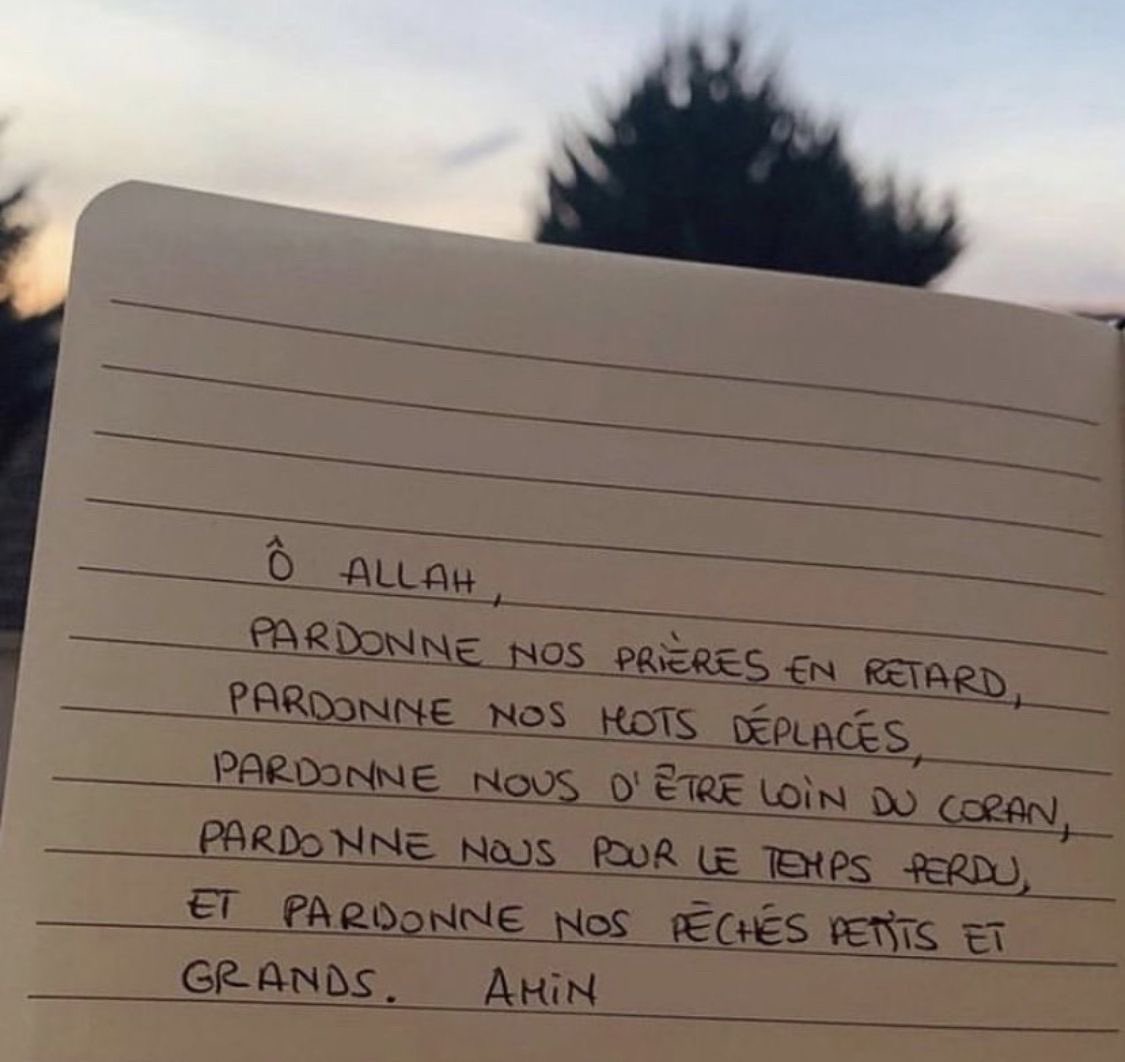 Ô ALLAH,
PARDONNE NOS PRIÈRES EN RETARD,
PARDONNE NOS MOTS DÉPLACÉS,
PARDONNE NOUS D'ÊTRE LOIN DU CORAN,
PARDONNE NOUS POUR LE TEMPS PERDU,
ET PARDONNE NOS PÉCHÉS PETITS ET
GRANDS. AMIN